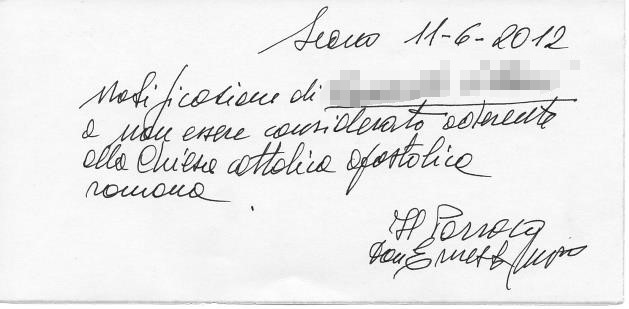 11-6-2012
Notificazione di
a non essere considerato aderente
alla Chiesa cattolica apostolica
romana.
Il Parroco
Don Ernesto